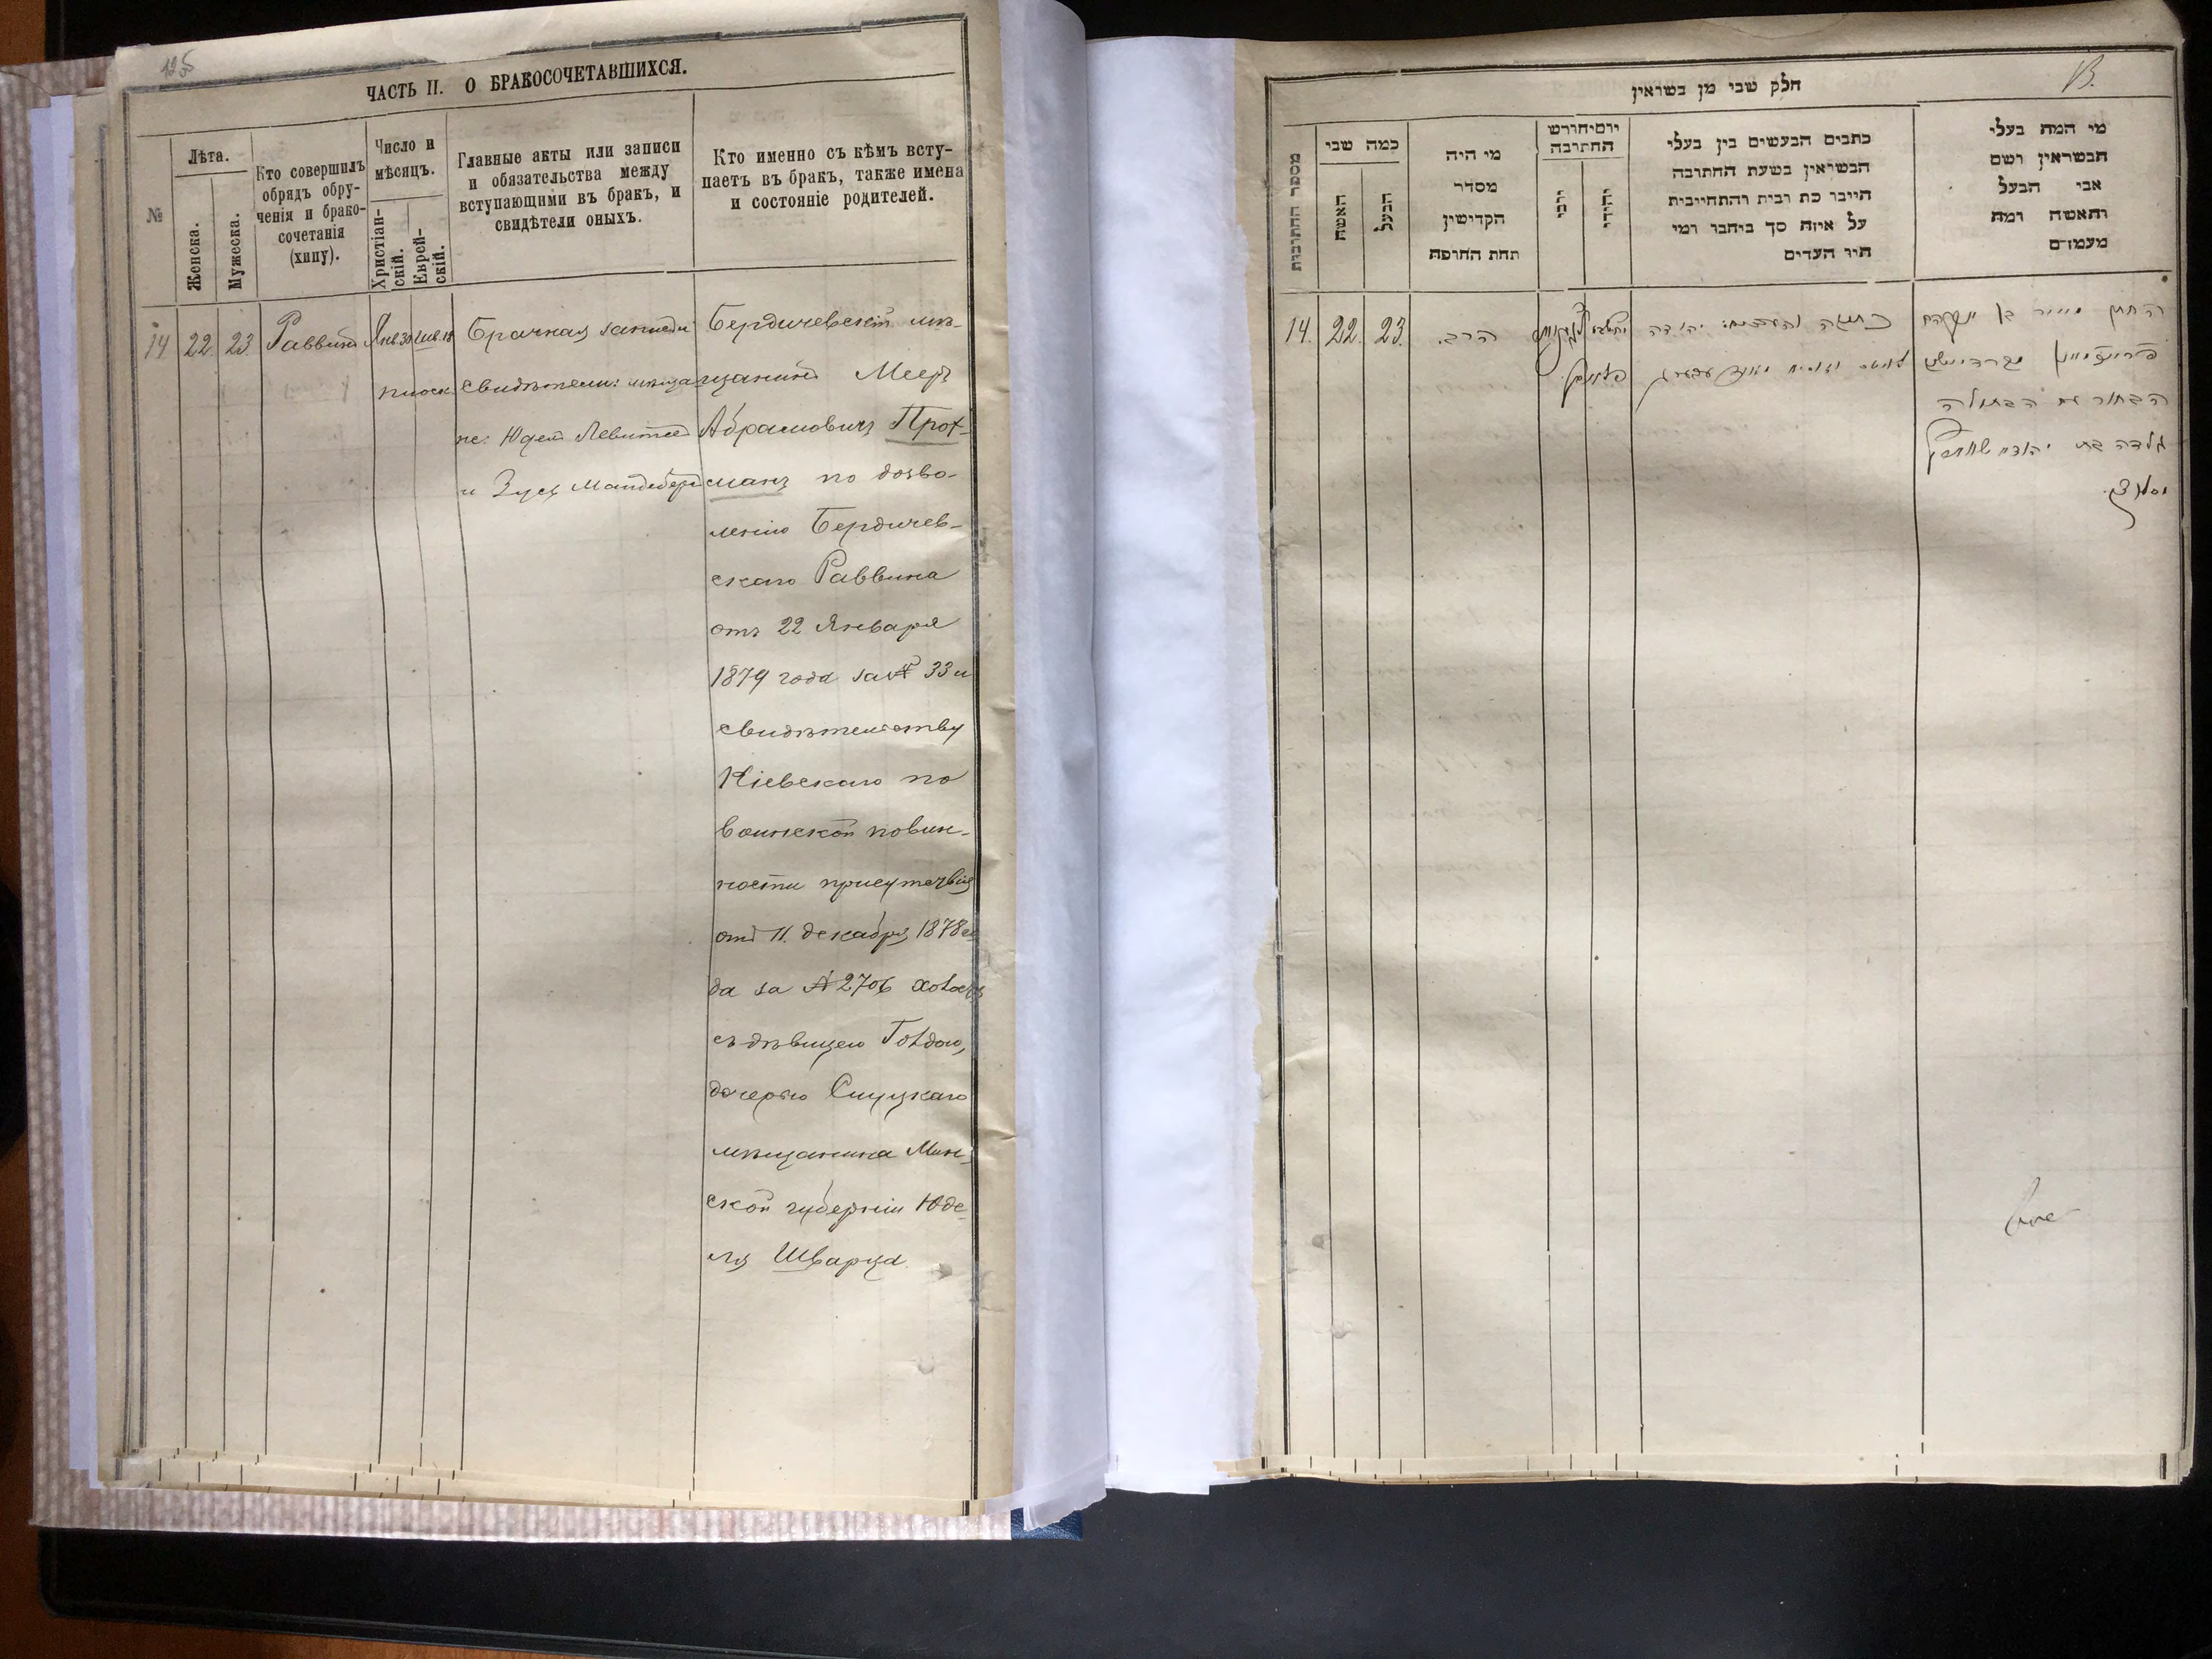 125
ЧАСТЬ II. О БРАКОСОЧЕТАВШИХСЯ.
№
Лѣта.
Женска.
Мужеска.
Кто совершилъ
обрядъ обру-
ченія и брако-
сочетанія
(хипу).
Число и
мѣсяцъ.
Христіан-
скій.
Еврей-
скій.
Главные акты или записи
и обязательства между
вступающими въ бракъ, и
свидѣтели оныхъ.
Кто именно съ кѣмъ всту-
паетъ въ бракъ, также имена
и состояніе родителей.
14
22.
23.
Раввинъ
Янв. 30
Шв. 18
Брачная запись
свидѣтели: мѣща
не: Юдель Левитъ
и Зусь
Бердичевскій мѣ-
щанинъ Мееръ
Абрамовичъ Прот-
манъ по дозво-
ленію Бердичев-
скаго Раввина
отъ 22 Января
1879 года за № 33 и
свидѣтельству
Кіевскаго по
воинской повин-
ности присутствія
отъ 11. декабря 1878 го
да за № 2706 холостъ
съ дѣвицею Голдою,
дочерью Слуцкаго
мѣщанина Мин-
ской губерніи Юде-
ля Шварца.
חלק שני מן נשואין
מספר החתונות
כמה שני
האשה
הבעל
מי היה
מסדר
הקדישין
תחת החופה
יום וחודש
החתונה
כתבים הנעשים בין בעלי
הנשואין בשעת החתונה
היינו כת
על איזה סך ניתנו ומי
היו העדים
מי המה בעלי
הנשואין ושם
אבי הבעל
והאשה ומה
מעמדם
14.
22.
23.
הרב.
כתובה והעדים: יהודה
החתן מאיר בן
הבחור עם הבתולה
גלדה בת יהודה